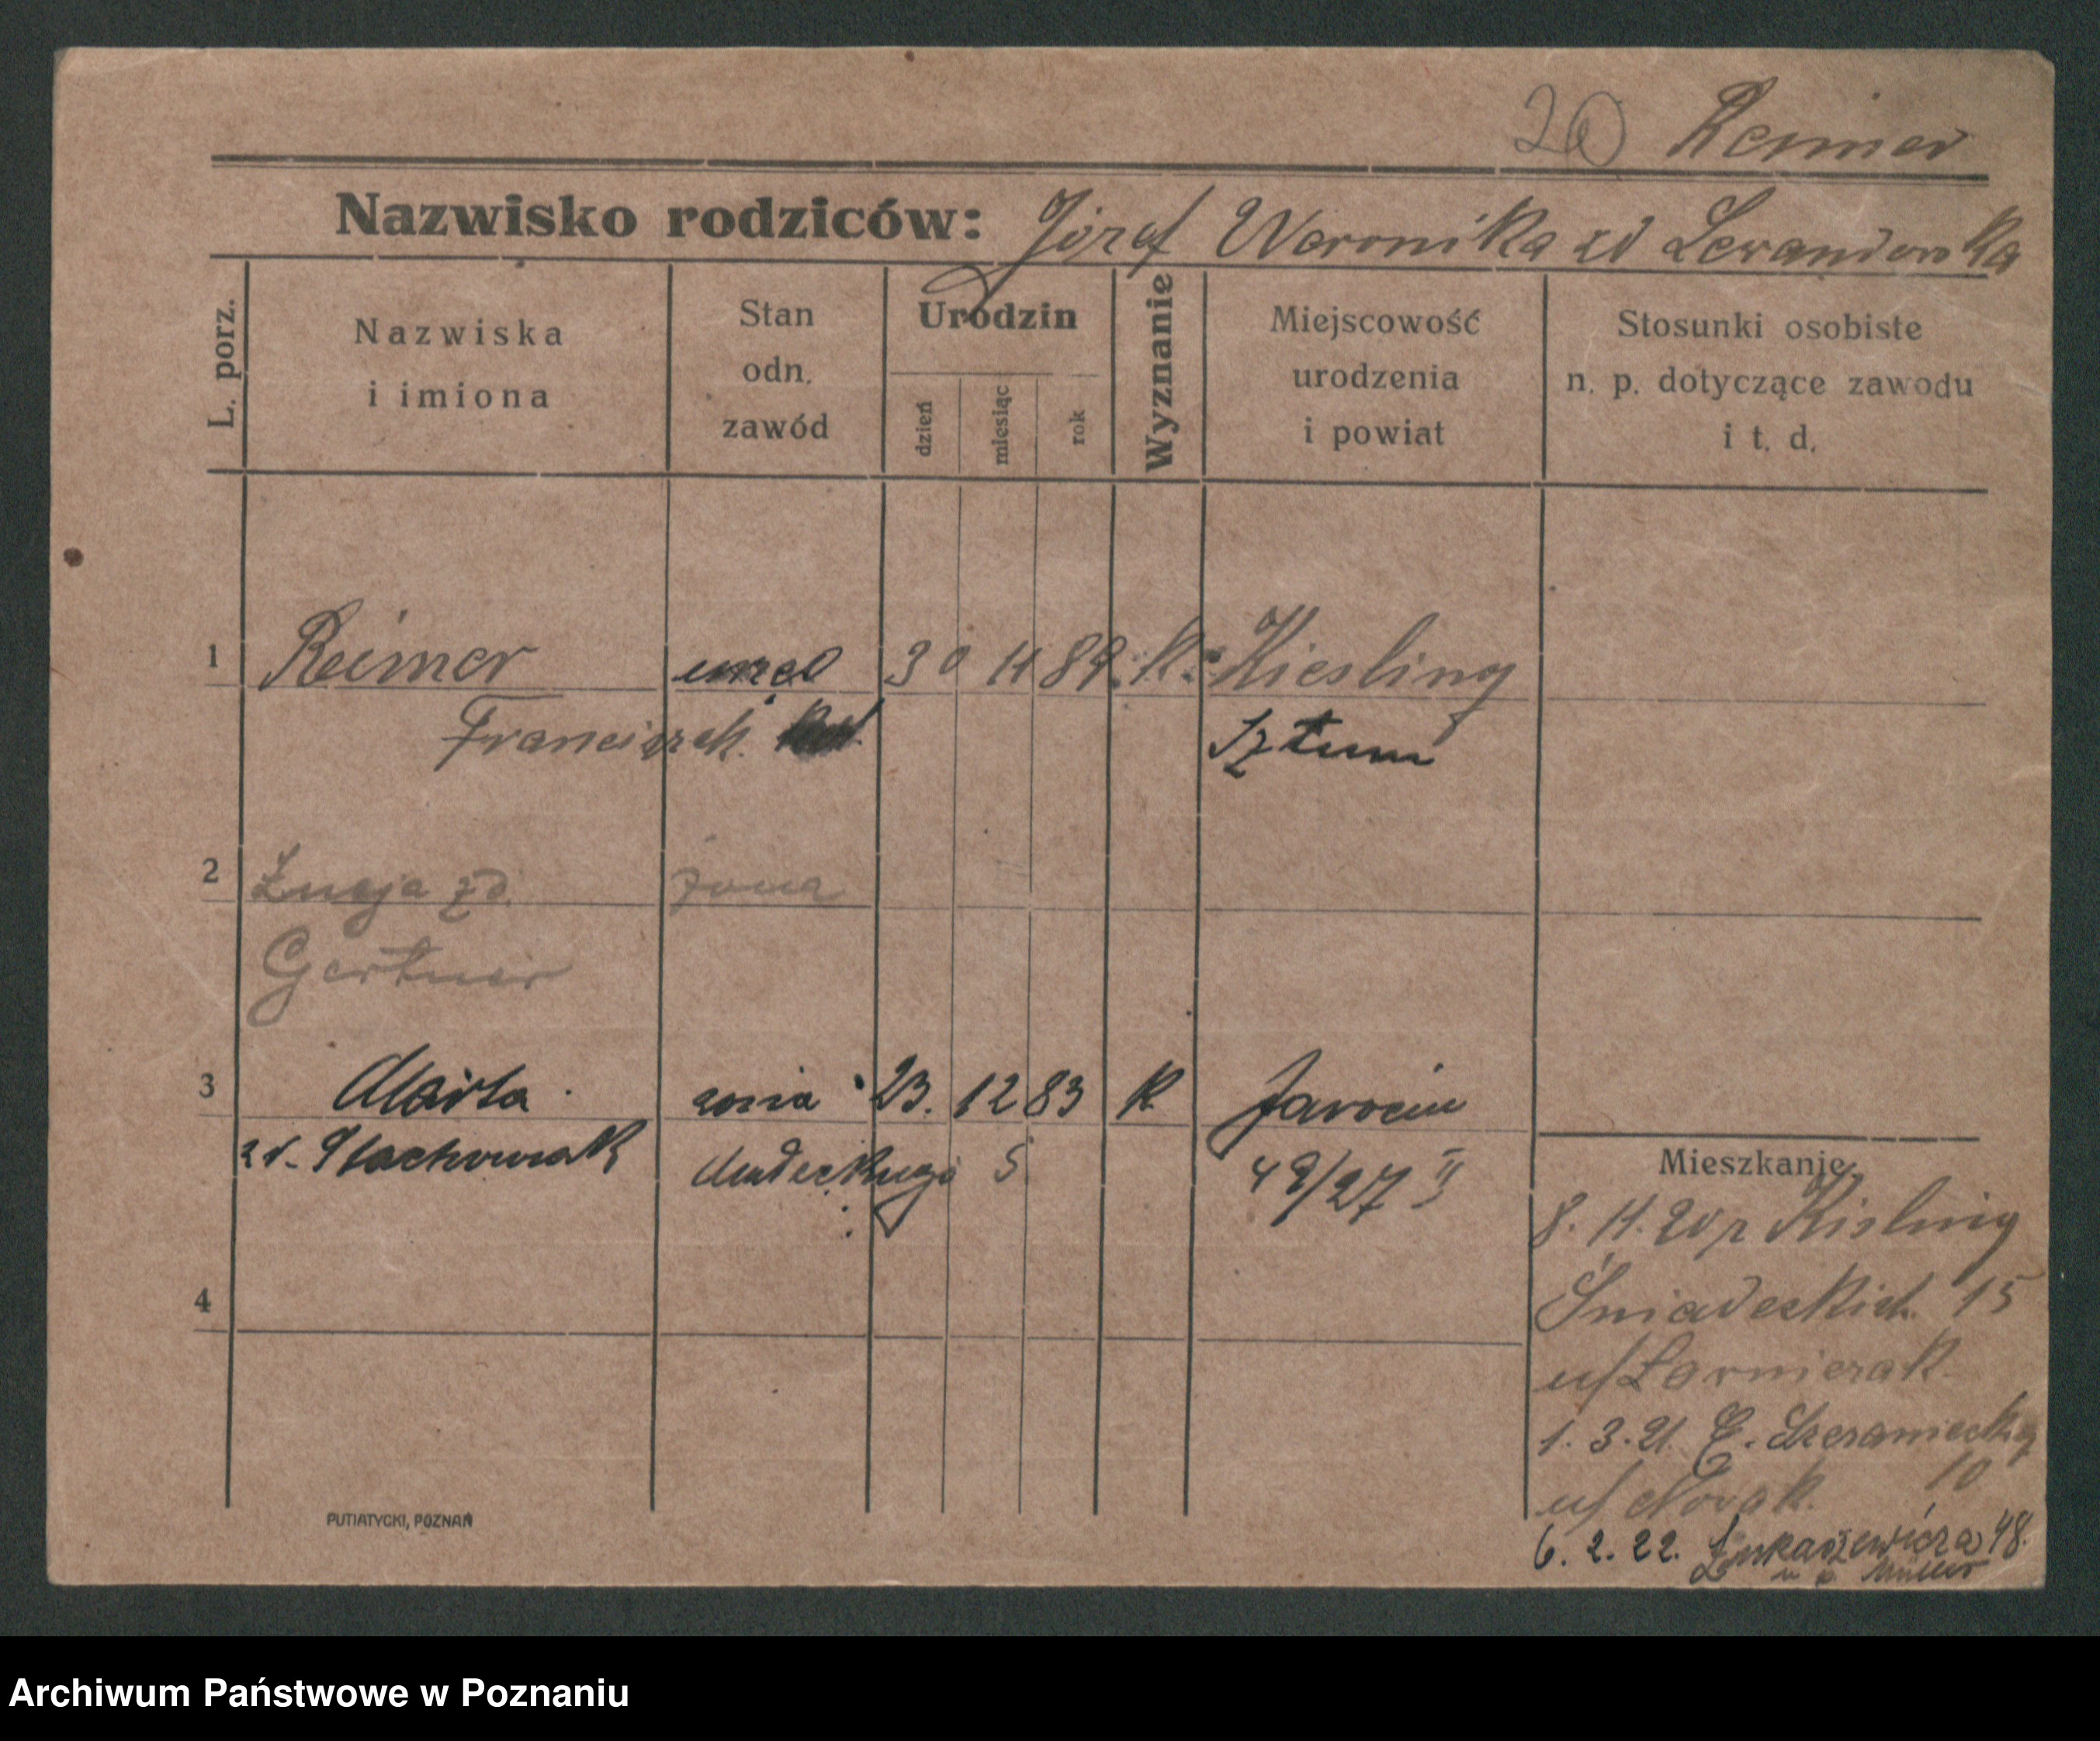 20 Reimer
Nazwisko rodziców: Józef Weronika zd Lewandowska
L. porz.
Nazwiska
i imiona
Stan
odn.
zawód
Urodzin
dzień
miesiąc
rok
Wyznanie
Miejscowość
urodzenia
i powiat
Stosunki osobiste
n. p. dotyczące zawodu
i t. d.
1 Reimer 30 11 89. K. Kiesling
Franciszek. Sztum
2 Łucja zd. żona
Gertner
3 Marta żona 23. 12 83 K Jarocin
zd. Stachowiak 5 49/27 II
Mieszkanie
8. 11. 20 p Kisling
Śniadeckich 15
u/
1. 3. 21. E. Szczaniecką
u/ Nowak. 10
6. 2. 22. Łukaszewicza 48.
u p Müller
4
PUTIATYCKI, POZNAŃ
Archiwum Państwowe w Poznaniu